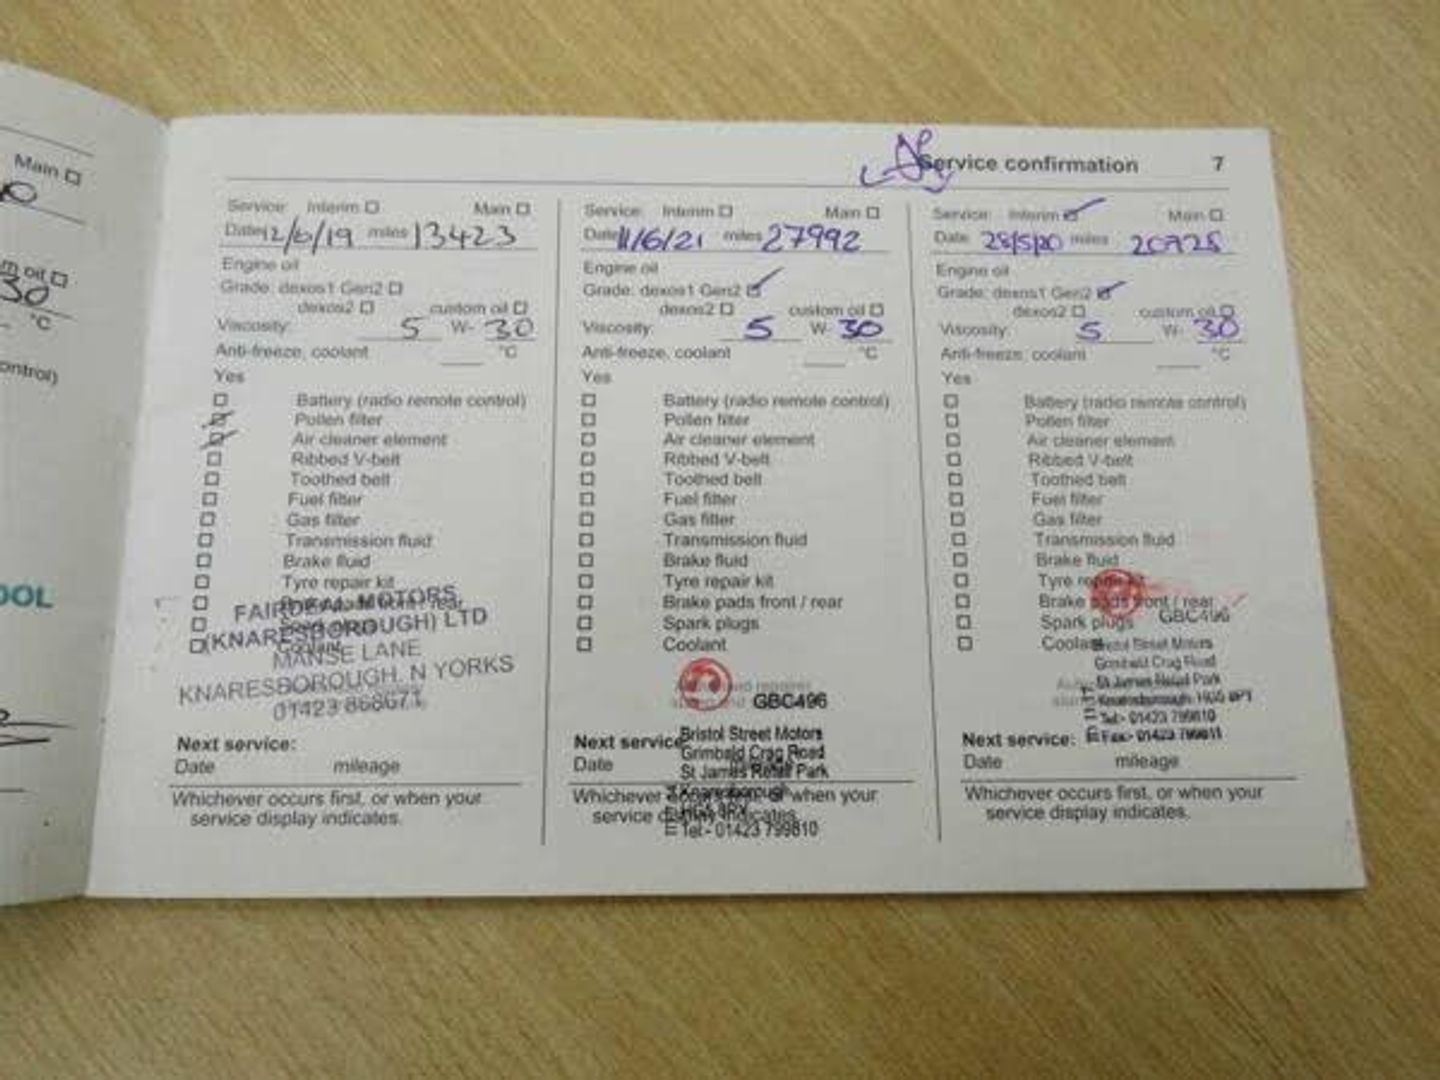 Main ☐
30
°C
ontrol)
OOL
Service confirmation 7
Service: Interim ☐ Main ☐
Date 12/6/19 miles 13423
Engine oil
Grade: dexos1 Gen2 ☐
dexos2 ☐ custom oil ☐
Viscosity: 5 W- 30
Anti-freeze, coolant ____ °C
Yes
☐ Battery (radio remote control)
☑ Pollen filter
☑ Air cleaner element
☐ Ribbed V-belt
☐ Toothed belt
☐ Fuel filter
☐ Gas filter
☐ Transmission fluid
☐ Brake fluid
☐ Tyre repair kit
FAIRDEAL MOTORS
(KNARESBOROUGH) LTD
MANSE LANE
KNARESBOROUGH, N YORKS
01423 868671
Next service:
Date mileage
Whichever occurs first, or when your
service display indicates.
Service: Interim ☐ Main ☐
Date 11/6/21 miles 27992
Engine oil
Grade: dexos1 Gen2 ☑
dexos2 ☐ custom oil ☐
Viscosity: 5 W- 30
Anti-freeze, coolant ____ °C
Yes
☐ Battery (radio remote control)
☐ Pollen filter
☐ Air cleaner element
☐ Ribbed V-belt
☐ Toothed belt
☐ Fuel filter
☐ Gas filter
☐ Transmission fluid
☐ Brake fluid
☐ Tyre repair kit
☐ Brake pads front / rear
☐ Spark plugs
☐ Coolant
GBC496
Bristol Street Motors
Grimbald Crag Road
St James Retail Park
Knaresborough
Tel:- 01423 799810
Next service:
Date
Whichever occurs first, or when your
service display indicates.
Service: Interim ☑ Main ☐
Date 28/5/20 miles 20728
Engine oil
Grade: dexos1 Gen2 ☑
dexos2 ☐ custom oil ☐
Viscosity: 5 W- 30
Anti-freeze, coolant ____ °C
Yes
☐ Battery (radio remote control)
☐ Pollen filter
☐ Air cleaner element
☐ Ribbed V-belt
☐ Toothed belt
☐ Fuel filter
☐ Gas filter
☐ Transmission fluid
☐ Brake fluid
☐ Tyre repair kit
☐ Brake pads front / rear
☐ Spark plugs
☐ Coolant
GBC496
Bristol Street Motors
Grimbald Crag Road
St James Retail Park
Knaresborough HG5 8PY
Tel:- 01423 799810
Fax:- 01423 799811
Next service:
Date mileage
Whichever occurs first, or when your
service display indicates.